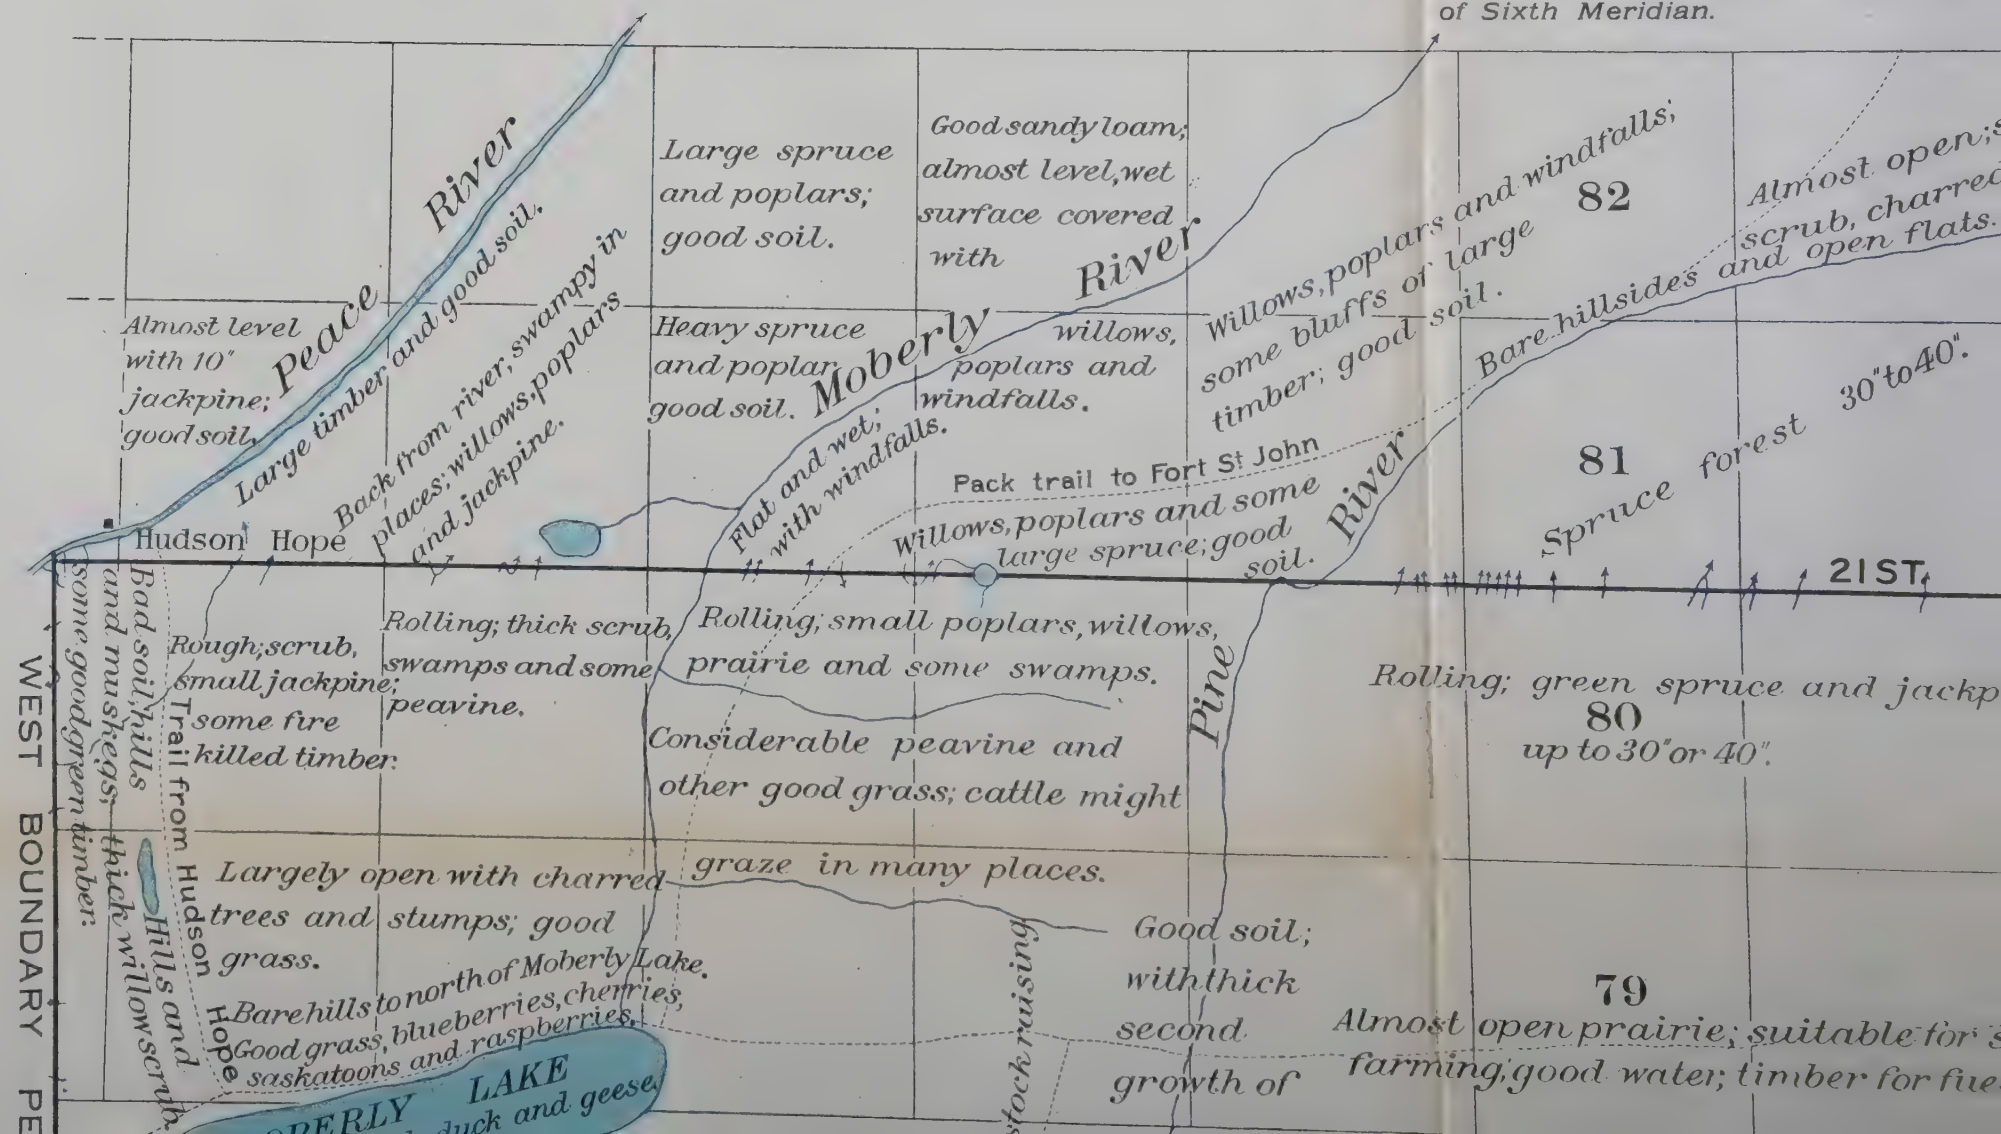 of Sixth Meridian.
Peace River
Large timber and good soil.
Back from river, swampy in
places; willows, poplars
and jackpine.
Almost level
with 10"
jackpine;
good soil,
Large spruce
and poplars;
good soil.
Good sandy loam;
almost level, wet
surface covered
with
willows,
poplars and
windfalls.
Heavy spruce
and poplar
good soil.
Moberly River
Flat and wet;
with windfalls.
Willows, poplars and windfalls;
some bluffs of large
timber; good soil.
82
Almost open; s
scrub, charred
and open flats.
Bare hillsides
Pack trail to Fort St. John
Willows, poplars and some
large spruce; good
soil.
Pine River
81
Spruce forest 30" to 40".
Hudson Hope
21ST.
WEST BOUNDARY PE
Bad soil; hills
and muskegs; thick willow scrub.
some good green timber.
Hills and
Trail from Hudson Hope
Rough; scrub,
small jackpine;
some fire
killed timber.
Rolling; thick scrub,
swamps and some
peavine.
Rolling; small poplars, willows,
prairie and some swamps.
Considerable peavine and
other good grass; cattle might
graze in many places.
Rolling; green spruce and jackp
80
up to 30" or 40".
Largely open with charred
trees and stumps; good
grass.
Bare hills to north of Moberly Lake.
Good grass, blueberries, cherries,
saskatoons and raspberries.
OBERLY LAKE
duck and geese,
stock raising
Good soil;
with thick
second
growth of
79
Almost open prairie; suitable for s
farming; good water; timber for fue